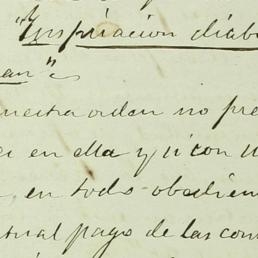 "Inspiracion diab
an"
uestra orden no pre
en ella y ni con u
, en todo obedien
tual pago de las con